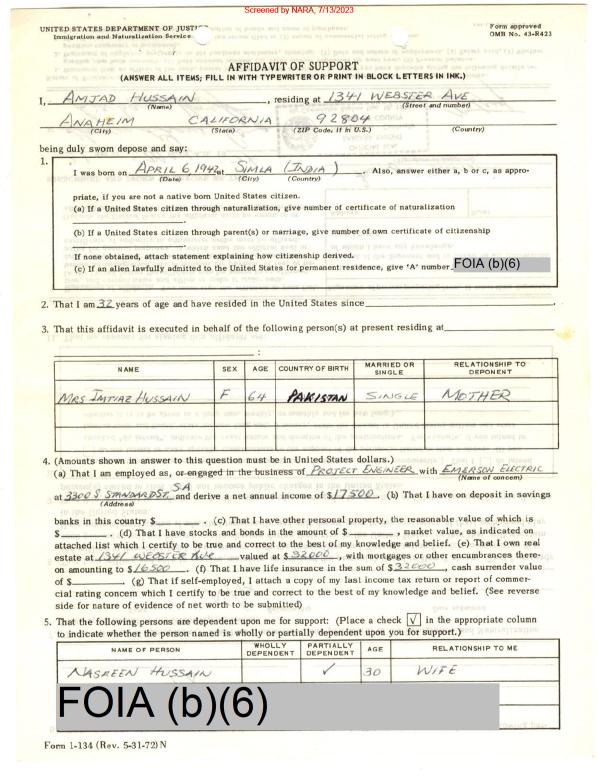 Screened by NARA, 7/13/2023
UNITED STATES DEPARTMENT OF JUSTICE
Immigration and Naturalization Service
Form approved
OMB No. 43-R423
AFFIDAVIT OF SUPPORT
(ANSWER ALL ITEMS; FILL IN WITH TYPEWRITER OR PRINT IN BLOCK LETTERS IN INK.)
I, AMJAD HUSSAIN, residing at 1341 WEBSTER AVE
(Name) (Street and number)
ANAHEIM CALIFORNIA 92804
(City) (State) (ZIP Code, if in U.S.) (Country)
being duly sworn depose and say:
1.
I was born on APRIL 6, 1942 at SIMLA (INDIA). Also, answer either a, b or c, as appro-
(Date) (City) (Country)
priate, if you are not a native born United States citizen.
(a) If a United States citizen through naturalization, give number of certificate of naturalization
(b) If a United States citizen through parent(s) or marriage, give number of own certificate of citizenship
If none obtained, attach statement explaining how citizenship derived.
(c) If an alien lawfully admitted to the United States for permanent residence, give 'A' number FOIA (b)(6)
2. That I am 32 years of age and have resided in the United States since
3. That this affidavit is executed in behalf of the following person(s) at present residing at
:
NAME SEX AGE COUNTRY OF BIRTH MARRIED OR SINGLE RELATIONSHIP TO DEPONENT
MRS IMTIAZ HUSSAIN F 64 PAKISTAN SINGLE MOTHER
4. (Amounts shown in answer to this question must be in United States dollars.)
(a) That I am employed as, or engaged in the business of PROJECT ENGINEER with EMERSON ELECTRIC
(Name of concern)
at 3300 S STANDARD ST. SA and derive a net annual income of $17500. (b) That I have on deposit in savings
(Address)
banks in this country $ . (c) That I have other personal property, the reasonable value of which is
$ . (d) That I have stocks and bonds in the amount of $ , market value, as indicated on
attached list which I certify to be true and correct to the best of my knowledge and belief. (e) That I own real
estate at 1341 WEBSTER AVE valued at $32000, with mortgages or other encumbrances there-
on amounting to $16500. (f) That I have life insurance in the sum of $32000, cash surrender value
of $ . (g) That if self-employed, I attach a copy of my last income tax return or report of commer-
cial rating concern which I certify to be true and correct to the best of my knowledge and belief. (See reverse
side for nature of evidence of net worth to be submitted)
5. That the following persons are dependent upon me for support: (Place a check [√] in the appropriate column
to indicate whether the person named is wholly or partially dependent upon you for support.)
NAME OF PERSON WHOLLY DEPENDENT PARTIALLY DEPENDENT AGE RELATIONSHIP TO ME
NASREEN HUSSAIN ✓ 30 WIFE
FOIA (b)(6)
Form I-134 (Rev. 5-31-72) N